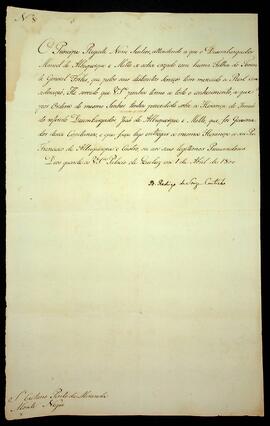 O Principe Regente Nosso Senhor, attendendo a que o Desembargador
Manoel de Albuquerque e Mello se acha cazado com huma Filha do
General Forbes, que pelos seus distinctos serviços tem merecido a Real
: He servido que VSª
por Ordem do mesmo Senhor tenha procedido sobre a Herança do
do referido Desembargador José de Albuquerque e Mello, que foi
dessa Capitania, e que faça logo entregar a mesma Herança a seu
Francisco de Albuquerque e Castro, ou aos seus legitimos Procuradores
Deos guarde a VSª Palacio de Queluz em 1 de Abril de
D. Rodrigo de Souza Coutinho
Sr Caetano Pinto de Miranda
Monte Negro